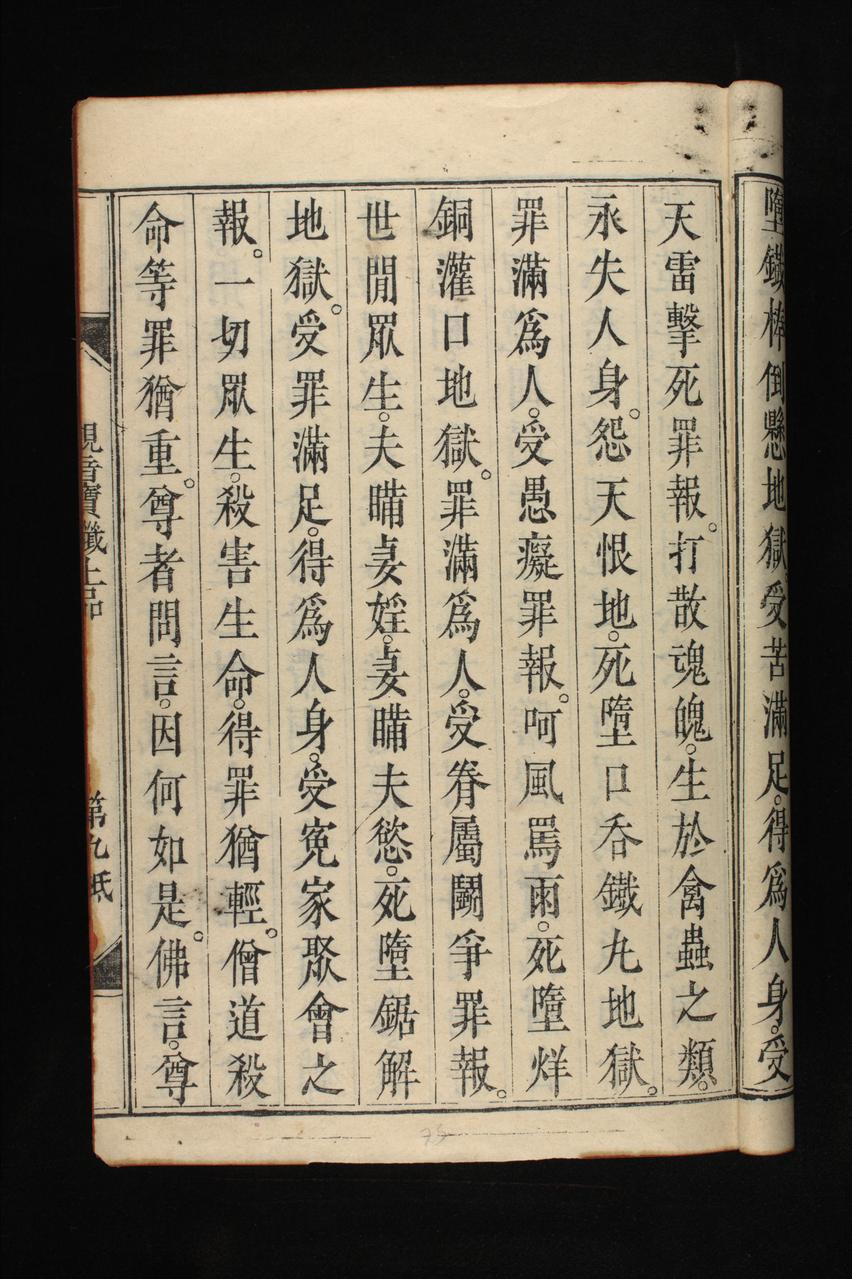 墮鐵棒倒懸地獄。受苦滿足。得爲人身。受
天雷擊死罪報。打散魂魄。生於禽蟲之類。
永失人身。怨天恨地。死墮口吞鐵丸地獄。
罪滿爲人。受愚癡罪報。呵風罵雨。死墮烊
銅灌口地獄。罪滿爲人。受眷屬鬬爭罪報。
世閒眾生。夫瞞妻婬。妻瞞夫慾。死墮鋸解
地獄。受罪滿足。得爲人身。受寃家聚會之
報。一切眾生。殺害生命。得罪猶輕。僧道殺
命等罪猶重。尊者問言。因何如是。佛言。尊
觀音寶懺上品
第九紙
75